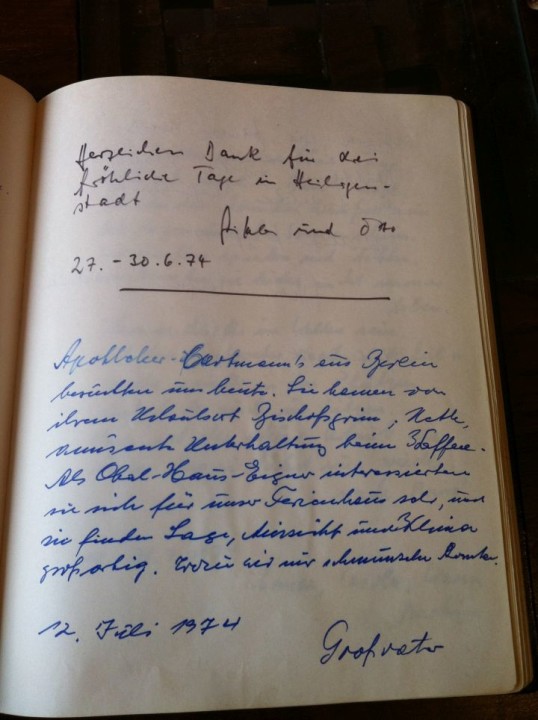 Herzlichen Dank für drei
fröhliche Tage in Heiligen-
stadt
und Otto
27. - 30.6.74
Apotheker-Cartmann's aus Berlin
besuchten uns heute. Sie kamen von
ihrem Urlaubsort Bischofsgrün; Nette,
amüsante Unterhaltung beim Kaffee.
Als Obal-Haus-Eigner interessierten
sie sich für unser Ferienhaus sehr, und
sie finden Lage, Aussicht und Klima
großartig. wir nur schmunzeln
12. Juli 1974
Großvater